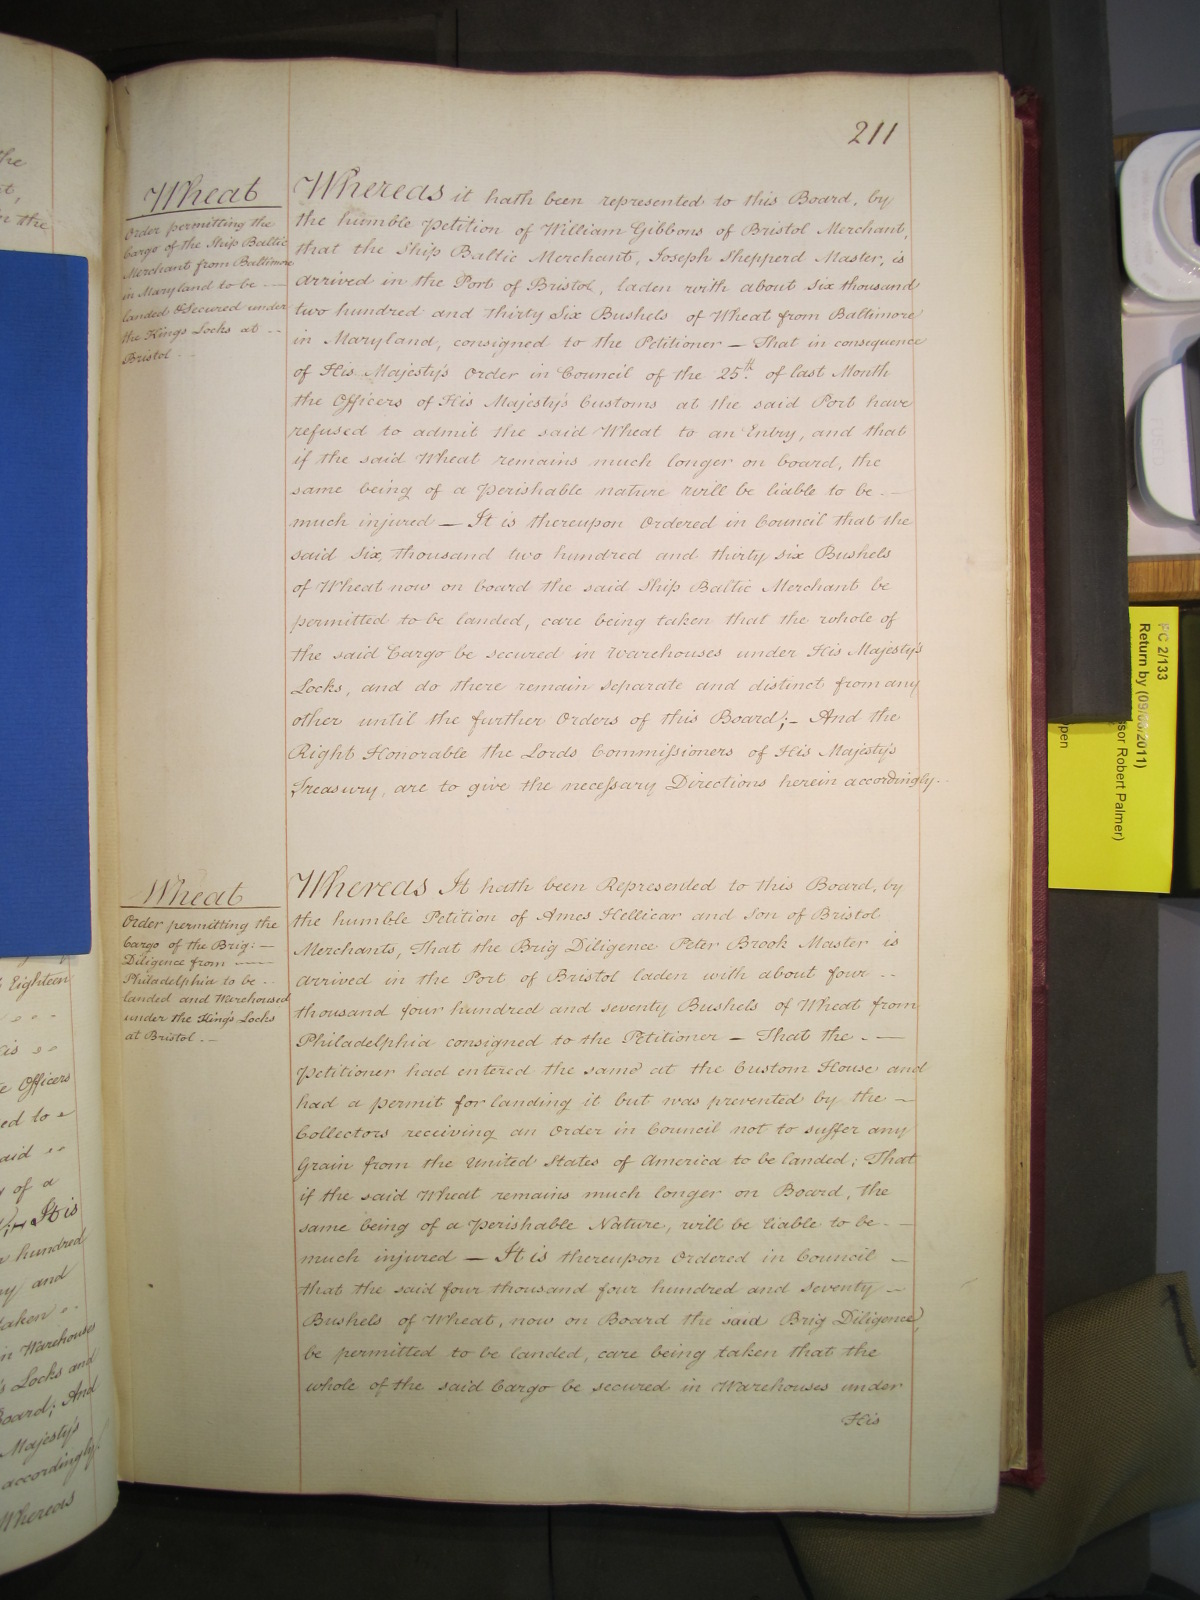 211
Wheat
Order permitting the
Cargo of the Ship Baltic
Merchant from Baltimore
in Maryland to be
landed & Secured under
the Kings Locks at
Bristol
Whereas it hath been represented to this Board, by
the humble Petition of William Gibbons of Bristol Merchant,
that the Ship Baltic Merchant, Joseph Shepperd Master, is
arrived in the Port of Bristol, laden with about Six thousand
two hundred and thirty Six Bushels of Wheat from Baltimore
in Maryland, consigned to the Petitioner — That in consequence
of His Majesty's Order in Council of the 25th. of last Month
the Officers of His Majesty's Customs at the said Port have
refused to admit the said Wheat to an Entry, and that
if the said Wheat remains much longer on board, the
same being of a perishable nature will be liable to be
much injured — It is thereupon Ordered in Council that the
said Six thousand two hundred and thirty six Bushels
of Wheat now on board the said Ship Baltic Merchant be
permitted to be landed, care being taken that the whole of
the said Cargo be secured in Warehouses under His Majesty's
Locks, and do there remain separate and distinct from any
other until the further Orders of this Board;- And the
Right Honorable the Lords Commissioners of His Majesty's
Treasury, are to give the necessary Directions herein accordingly.
Wheat
Order permitting the
Cargo of the Brig:
Diligence from
Philadelphia to be
landed and Warehoused
under the King's Locks
at Bristol
Whereas It hath been Represented to this Board, by
the humble Petition of Ames Hellicar and Son of Bristol
Merchants, That the Brig Diligence Peter Brook Master is
arrived in the Port of Bristol laden with about four
thousand four hundred and seventy Bushels of Wheat from
Philadelphia consigned to the Petitioner — That the
Petitioner had entered the same at the Custom House and
had a permit for landing it but was prevented by the
Collectors receiving an Order in Council not to suffer any
Grain from the United States of America to be landed; That
if the said Wheat remains much longer on Board, the
same being of a perishable Nature, will be liable to be
much injured — It is thereupon Ordered in Council
that the said four thousand four hundred and seventy
Bushels of Wheat, now on Board the said Brig Diligence,
be permitted to be landed, care being taken that the
whole of the said Cargo be secured in Warehouses under
His
the
in the
Eighteen
Officers
ed to
aid
of a
It is
hundred
and
taken
in Warehouses
Locks and
Board; And
Majesty's
accordingly.
Whereas
PC 2/133
Return by (09/05/2011)
ssor Robert Palmer)
pen